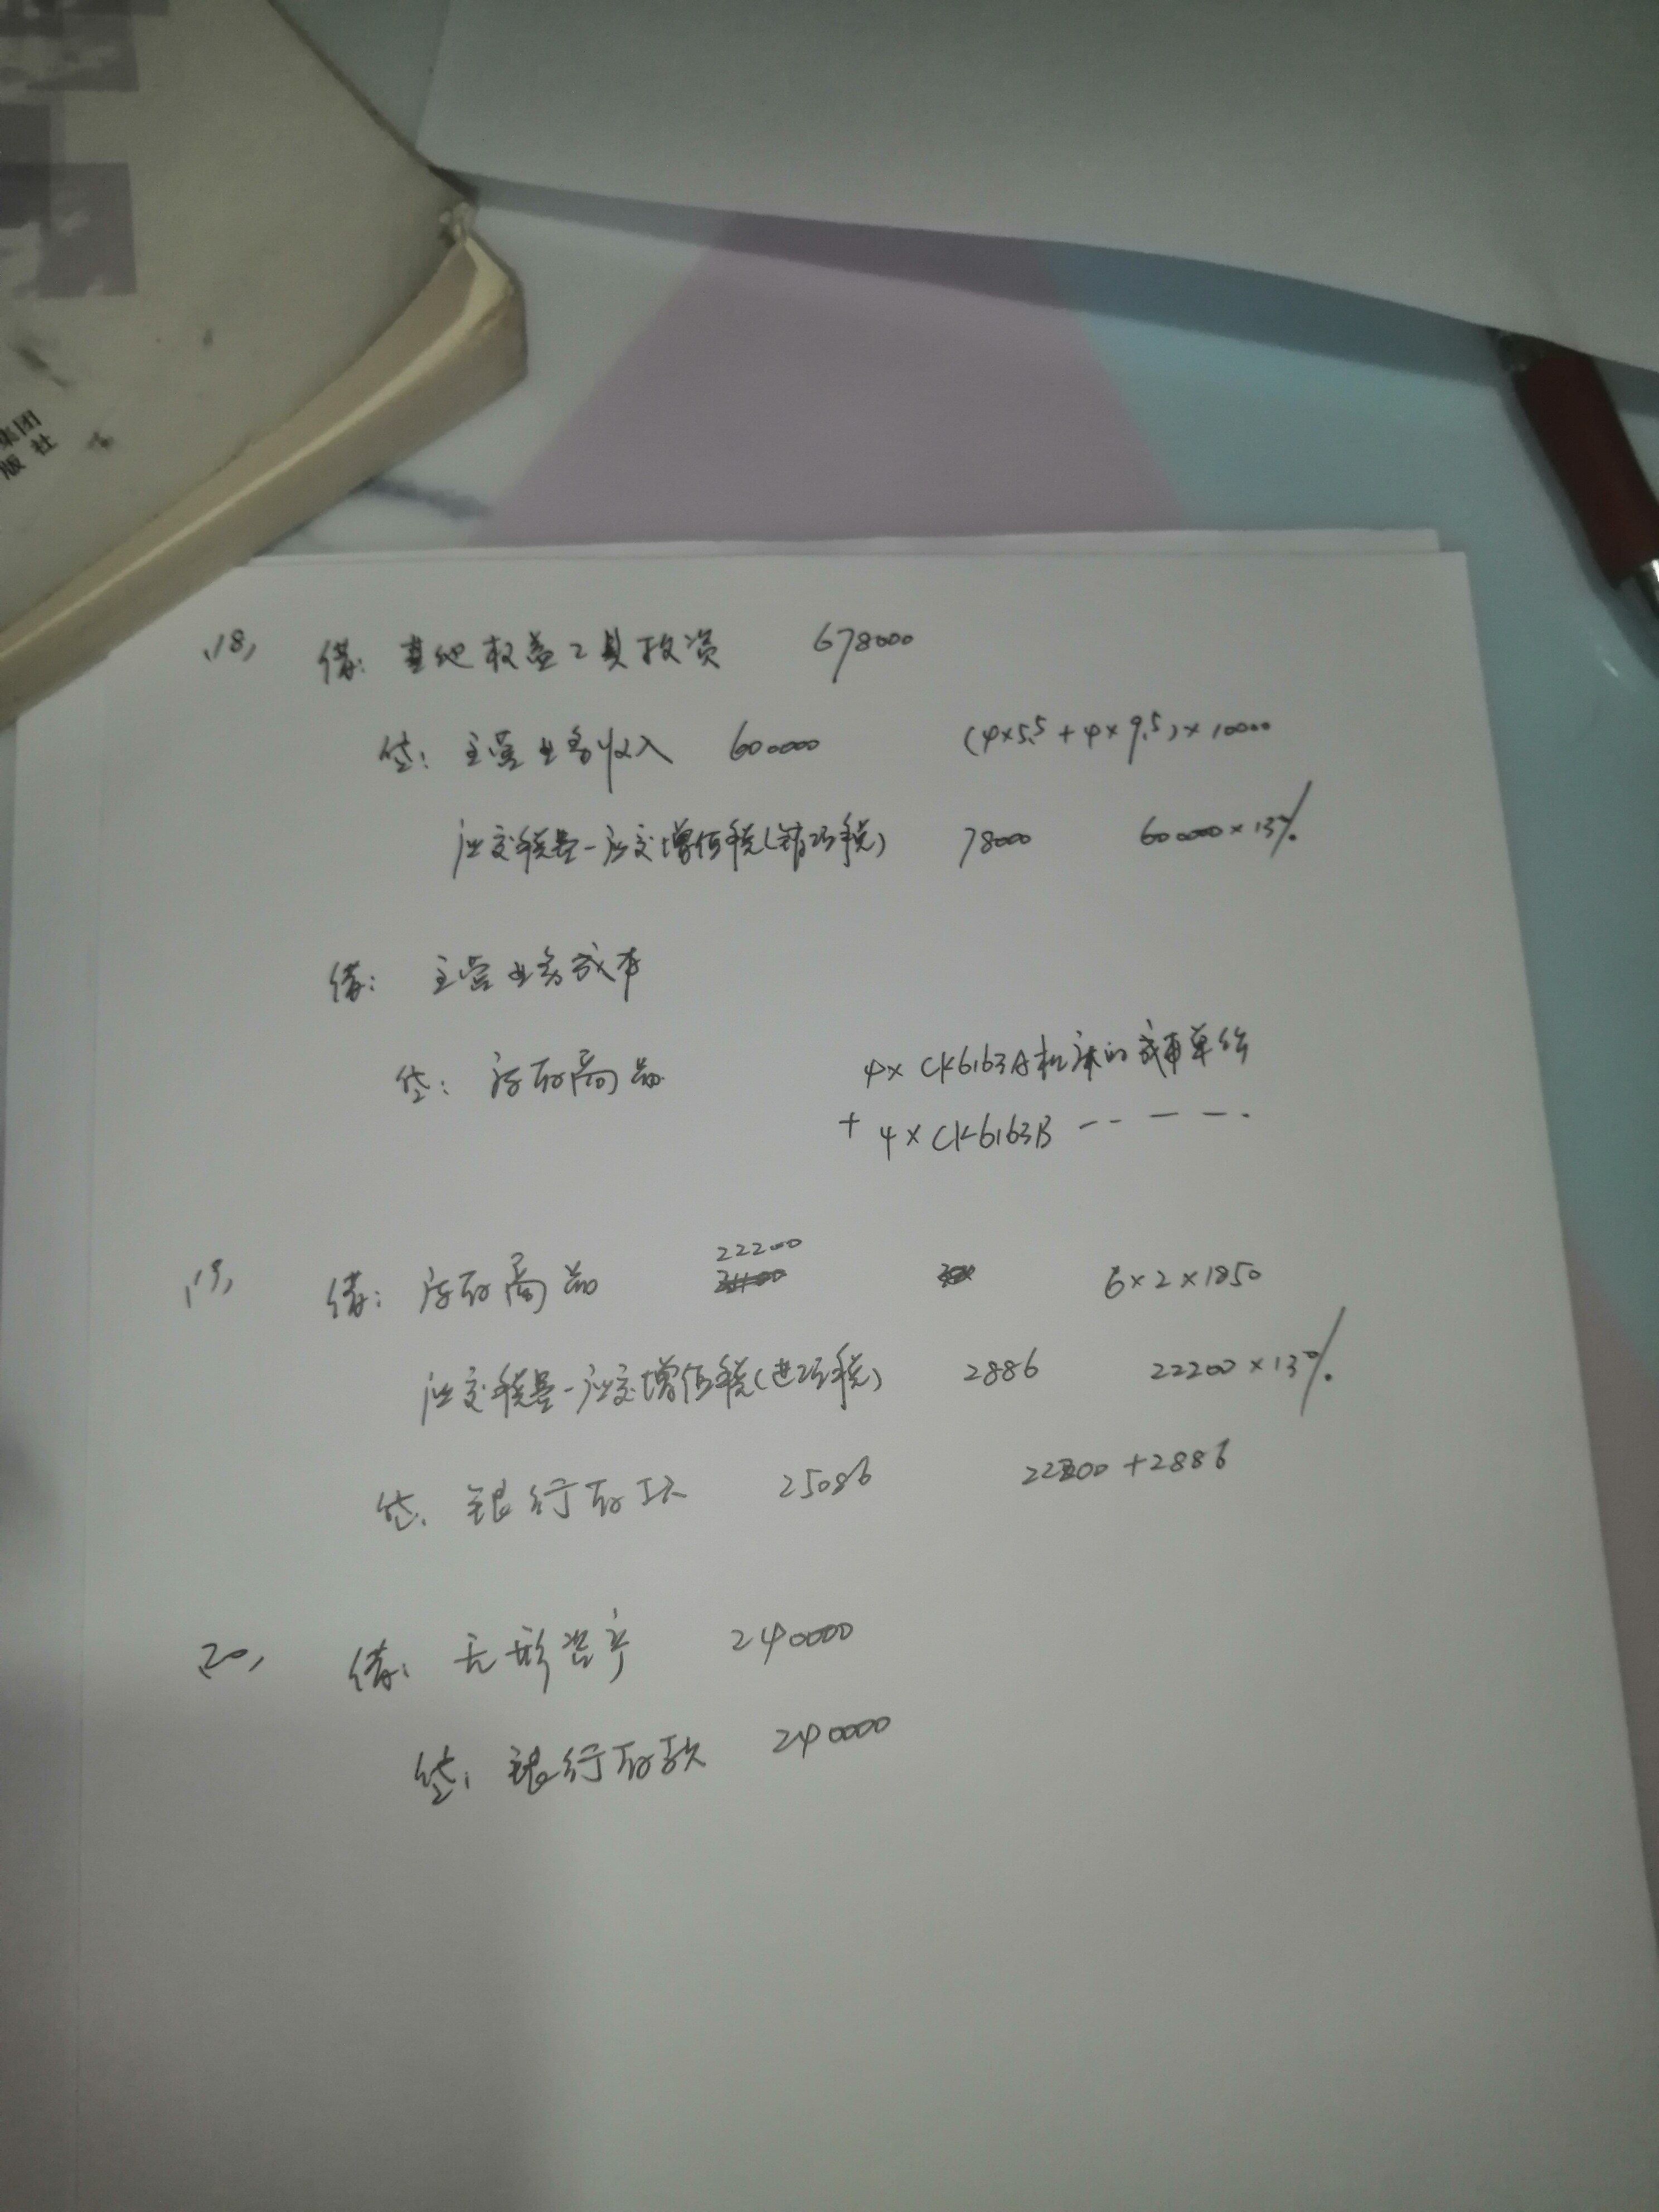 集团
版社
18, 借: 其他权益工具投资 678000
贷: 主营业务收入 600000 (4×5.5+4×9.5)×10000
应交税费-应交增值税(销项税) 78000 600000×13%
借: 主营业务成本
贷: 库存商品 4×CK6163A机床的成本单价
+ 4×CK6163B -- — — -.
19, 借: 库存商品 22200 6×2×1850
应交税费-应交增值税(进项税) 2886 22200×13%
贷: 银行存款 25086 22200+2886
20, 借: 无形资产 240000
贷: 银行存款 240000